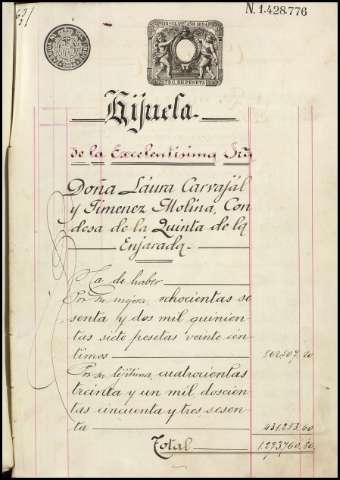 N. 1.428.776
Hijuela.
de la Excelentísima Sra
Doña Láura Carvajál
y Jimenez Molina, Con
desa de la Quinta de la
Enjarada.
Ha de haber
En su mejora, ochocientas se
senta y dos mil quinien
tas siete pesetas veinte cén
timos 862507,20
En su lejitima, cuatrocientas
treinta y un mil doscien
tas cincuenta y tres sesen
ta 431,253,60
Total 1.293,760,80